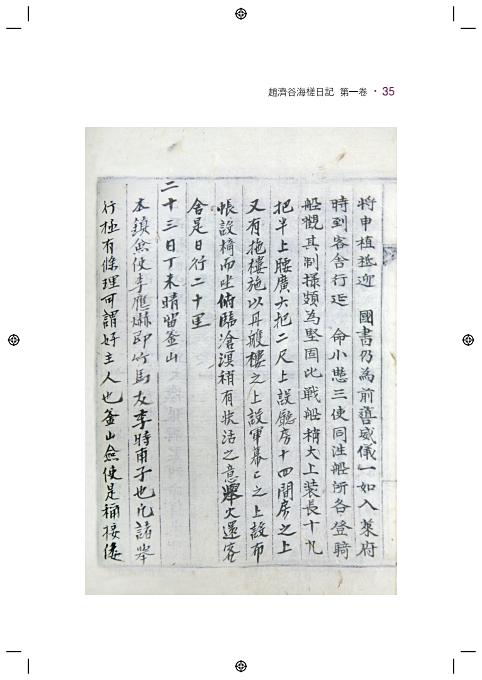 趙濟谷海槎日記 第一卷 · 35
將申植祗迎 國書乃為前導威儀一如入萊府
時到客舍行延 命小憩三使同往船所各登騎
船觀其制樣頗為堅固比戰船稍大上裝長十九
把半上腰廣六把二尺上設廳房十四間房之上
又有拖樓施以丹雘樓之上設軍幕幕之上設布
帳設椅而坐俯臨滄溟稍有狀活之意擧火還客
舍是日行二十里
二十三日丁未晴留釜山
本鎭僉使李應爀即竹馬友李時甫子也凡諸擧
行極有條理可謂好主人也釜山僉使是稱接倭